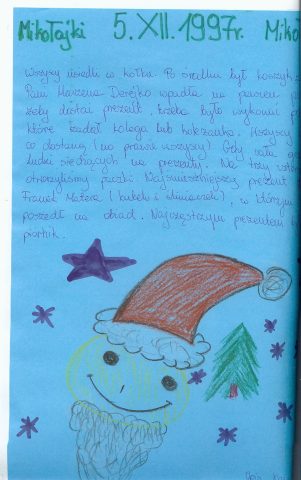 Mikołajki 5.XII.1997r. Miko
Wszyscy usiedli w kółko. Po środku był koszyk
Pani Marzena Derejko wpadła na pewien
żeby dostać prezent, trzeba było wykonać
które zadał kolega lub koleżanka. Wszyscy
co dostaną (no prawie wszyscy). Gdy cała
ludzi siedzących na prezenty. Na trzy
otworzyliśmy paczki. Najśmieszniejszy prezent
Franek Matera (kubek i), w którym
poszedł na obiad. Najczęstszym prezentem
piórnik.